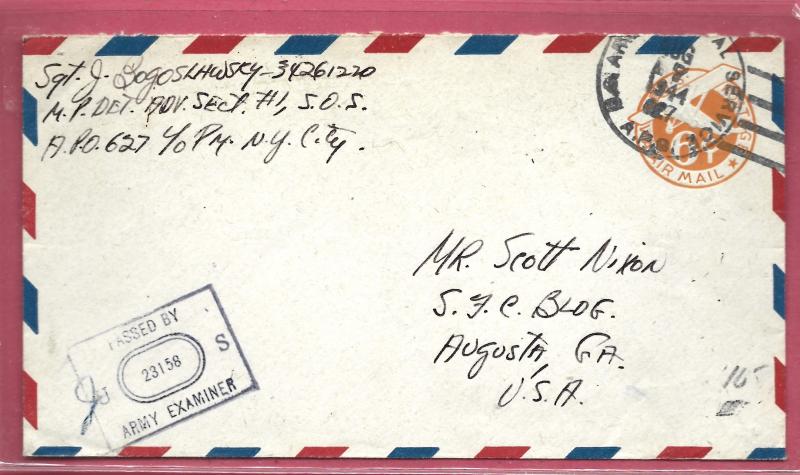 Sgt. J. BogoSLAWSKY-34261220
M.P. DET. ADV. SECT. #1, S.O.S.
A.P.O. 627 c/o P.M. N.Y. City.
1944
627
6¢
AIR MAIL
MR. Scott Nixon
S.F.C. BLDG.
Augusta, GA.
U.S.A.
PASSED BY
S
23158
ARMY EXAMINER